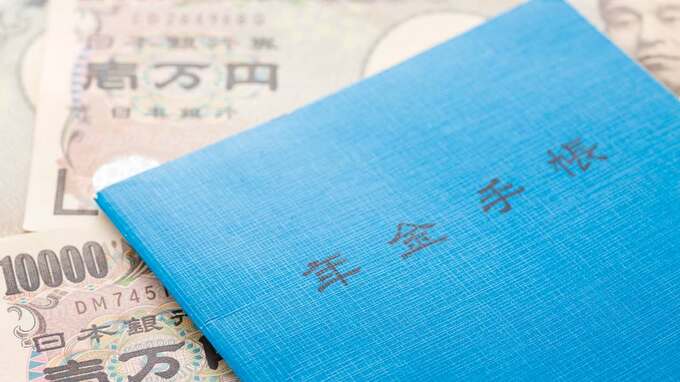 日本銀行券
壱万円
日本銀行
年金手帳
10000
DM745
日本銀
壱万